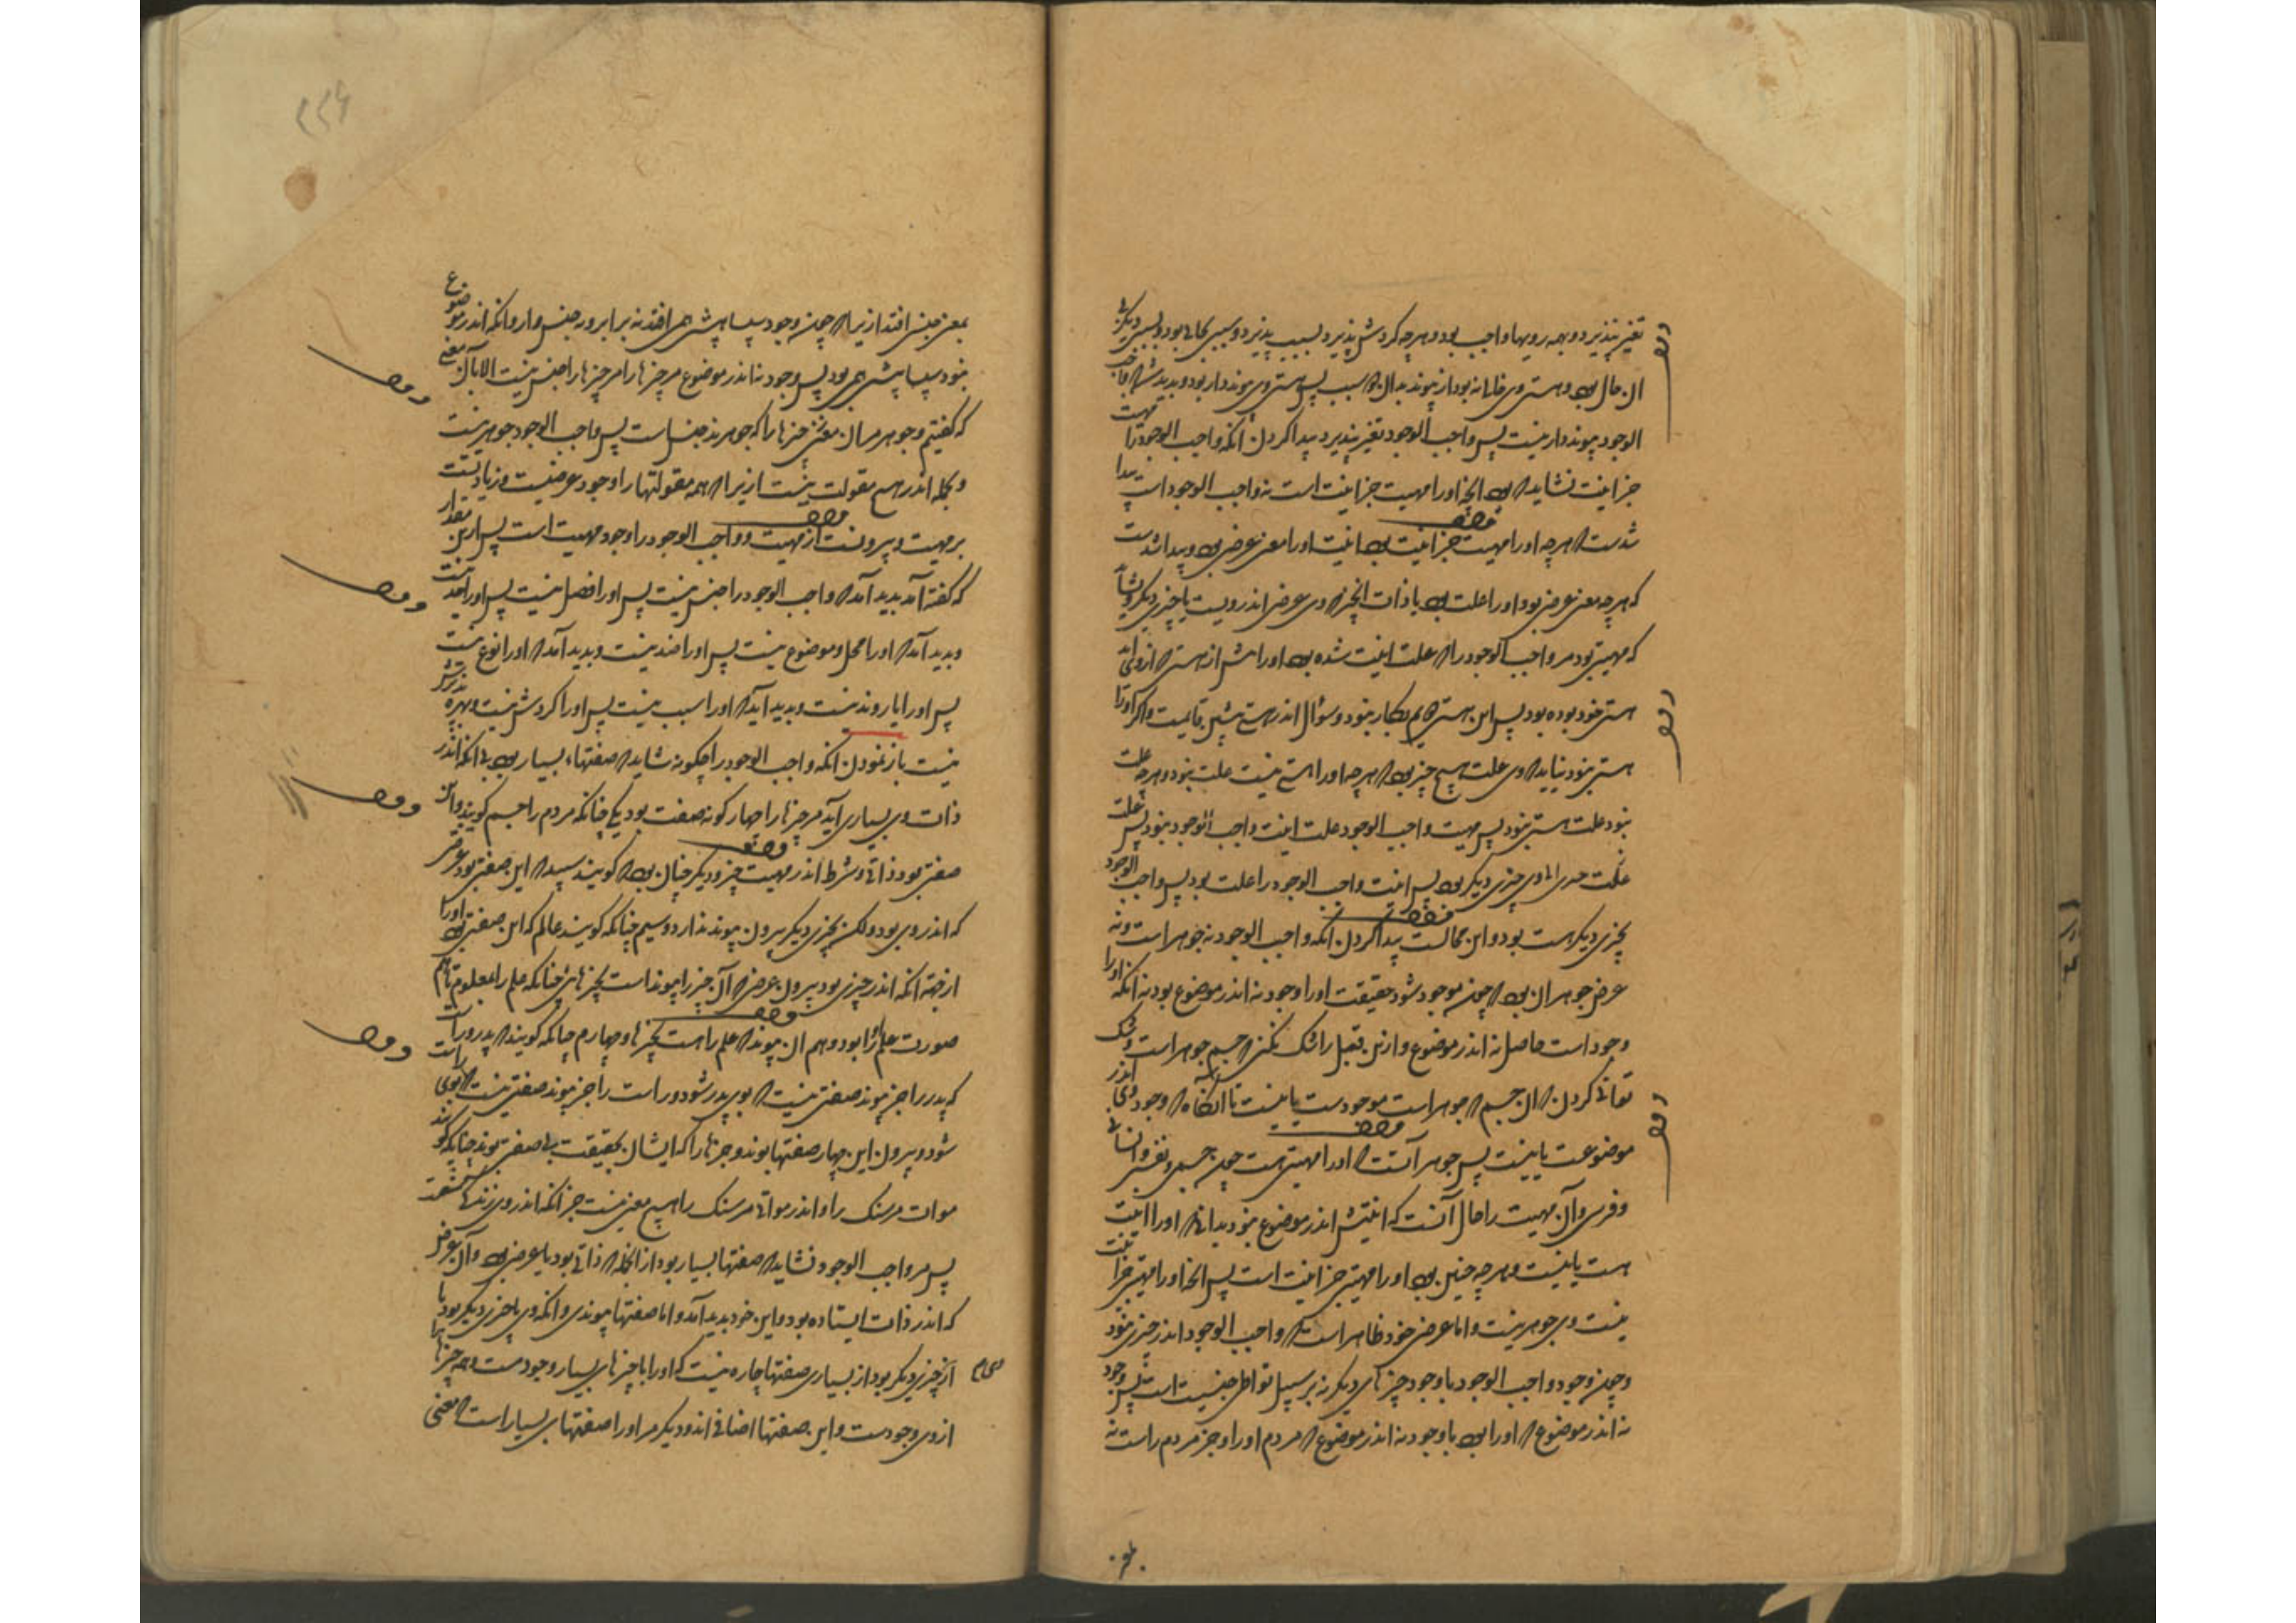 تغیر نپذیرد و بهمه رویها واجب بود و هرچه گردش پذیرد بسبب پذیرد و بسببی بحالی بود و بسببی دیگر
آن حال بود و هستی وی خالی نه بود از پیوند بدان سبب پس هستی وی پیوند دار بود و پدید شد که واجب
الوجود پیوند دار نیست پس واجب الوجود تغیر نپذیرد پیدا کردن آنکه واجب الوجود را مهیت
جز انیت نشاید که بود آنچه اورا مهیت جز انیت است نه واجب الوجود است پیدا
شدست که هرچه اورا مهیت جز انیت بود انیت اورا معنی عرضی بود و پیدا شدست
که هرچه معنی عرضی بود اورا علت بود یا ذات آنچیز که وی عرض اندر ویست یا چیزی دیگر و نشاید
که مهیتی بود مر واجب الوجود را که علت انیت شده بود اورا پیش از هستی که از وی آید
هستی خود بوده بود پس این هستی دوم بکار نبود و سؤال اندر هستی پیشین قایمست و اگر اورا
هستی نبود نیاید که وی علت هیچ چیز بود که هرچه اورا هستی نیست علت نبود و هرچه علت
نبود علت هستی نبود پس مهیت واجب الوجود علت انیت واجب الوجود نبود پس علت
وی چیزی دیگر بود پس انیت واجب الوجود را علت بود پس واجب الوجود
بچیزی دیگر هست بود و این محالست پیدا کردن آنکه واجب الوجود نه جوهر است و نه
عرض جوهر آن بود که چون موجود شود حقیقت اورا وجود نه اندر موضوع بود نه آنکه اورا
وجود است حاصل نه اندر موضوع و ازین قبل را شک نکنی که جسم جوهر است و شک
توانی کردن که آن جسم که جوهر است موجودست یا نیست تا آنگاه که وجود وی اندر
موضوعست یا نیست پس جوهر آنست که اورا مهیتی هست چون جسمی و نفسی و انسانی
و فرسی و آن مهیت را حال آنست که انیتش اندر موضوع نبود ندانی که اورا انیت
هست یا نیست و هرچه چنین بود اورا مهیتی جز انیت است پس آنچه اورا مهیتی جز انیت
نیست وی جوهر نیست و اما عرض خود ظاهر است که واجب الوجود اندر چیزی نبود
و چون وجود واجب الوجود با وجود چیزهای دیگر نه بر سبیل تواطی و جنسیت است پس وجود
نه اندر موضوع که اورا بود با وجود نه اندر موضوع که مردم اورا و جز مردم راست نه
بمعنی جنسی افتد ازیرا که چون وجود سپسا پیشی همی افتد نه برابر و نه جنس وار و آنکه اندر موضوع
نبود سپسا پیشی همی بود پس وجود نه اندر موضوع مر چیزها را مر چیزها را جنس نیست الا بآن معنی
که گفتیم و جوهر مر آن چیزها را که جوهرند جنس است پس واجب الوجود جوهر نیست
و بجمله اندر هیچ مقولت نیست ازیرا که همه مقولتها را وجود عرضیست و زیادتست
بر مهیت و بیرونست از مهیت و واجب الوجود را وجود مهیت است پس ازین مقدار
که گفته آمد پدید آمد که واجب الوجود را جنس نیست پس اورا فصل نیست پس اورا حد نیست
و پدید آمد که اورا محل و موضوع نیست پس اورا ضد نیست و پدید آمد که اورا نوع نیست
پس اورا یار و ند نیست و پدید آید که اورا سبب نیست پس اورا گردش نیست و بهره پذیرش
نیست باز نمودن آنکه واجب الوجود را چگونه شاید که صفتهاء بسیار بود بی آنکه اندر
ذات وی بسیاری آید مر چیزها را چهار گونه صفت بود یکی چنانکه مردم را جسم گویند و این
صفتی بود ذاتی و شرط اندر مهیت چیز و دیگر چنان بود که گویند سپید که این صفتی بود عرضی
که اندر وی بود ولکن بچیزی دیگر بیرون پیوند ندارد و سیم چنانکه گویند عالم که این صفتی بود اورا
از جهت آنکه اندر چیزی بود بیرون عرض که آن چیز را پیوند است بچیزهای چنانکه علم را بمعلوم تا هم
صورت علم را بود و هم آن پیوند که علم راست بچیزها و چهارم چنانکه گویند که پدر و راست
که پدر را جز پیوند صفتی نیست که بوی پدر شود و راست را جز پیوند صفتی نیست که بوی راست
شود و بیرون این چهار صفتها بوند چیزها را که ایشان بحقیقت بی صفتی بوند چنانکه گویند
موات مر سنگ را و اندر مواتی مر سنگ را هیچ معنی نیست جز آنکه اندر وی زندگی
پس مر واجب الوجود نشاید که صفتها بسیار بود از آنجمله که ذاتی بود یا عرضی بود و آن عرضی
که اندر ذات ایستاده بود و این خود پدید آمد و اما صفتها پیوندی و آنکه وی با چیزی دیگر بود یا
از چیزی دیگر بود از بسیاری صفتها چاره نیست که اورا با چیزهای بسیار وجودست و همه چیزها را
از وی وجودست و این صفتها اضافی اند و دیگر مر اورا صفتهای بسیار است که معنی